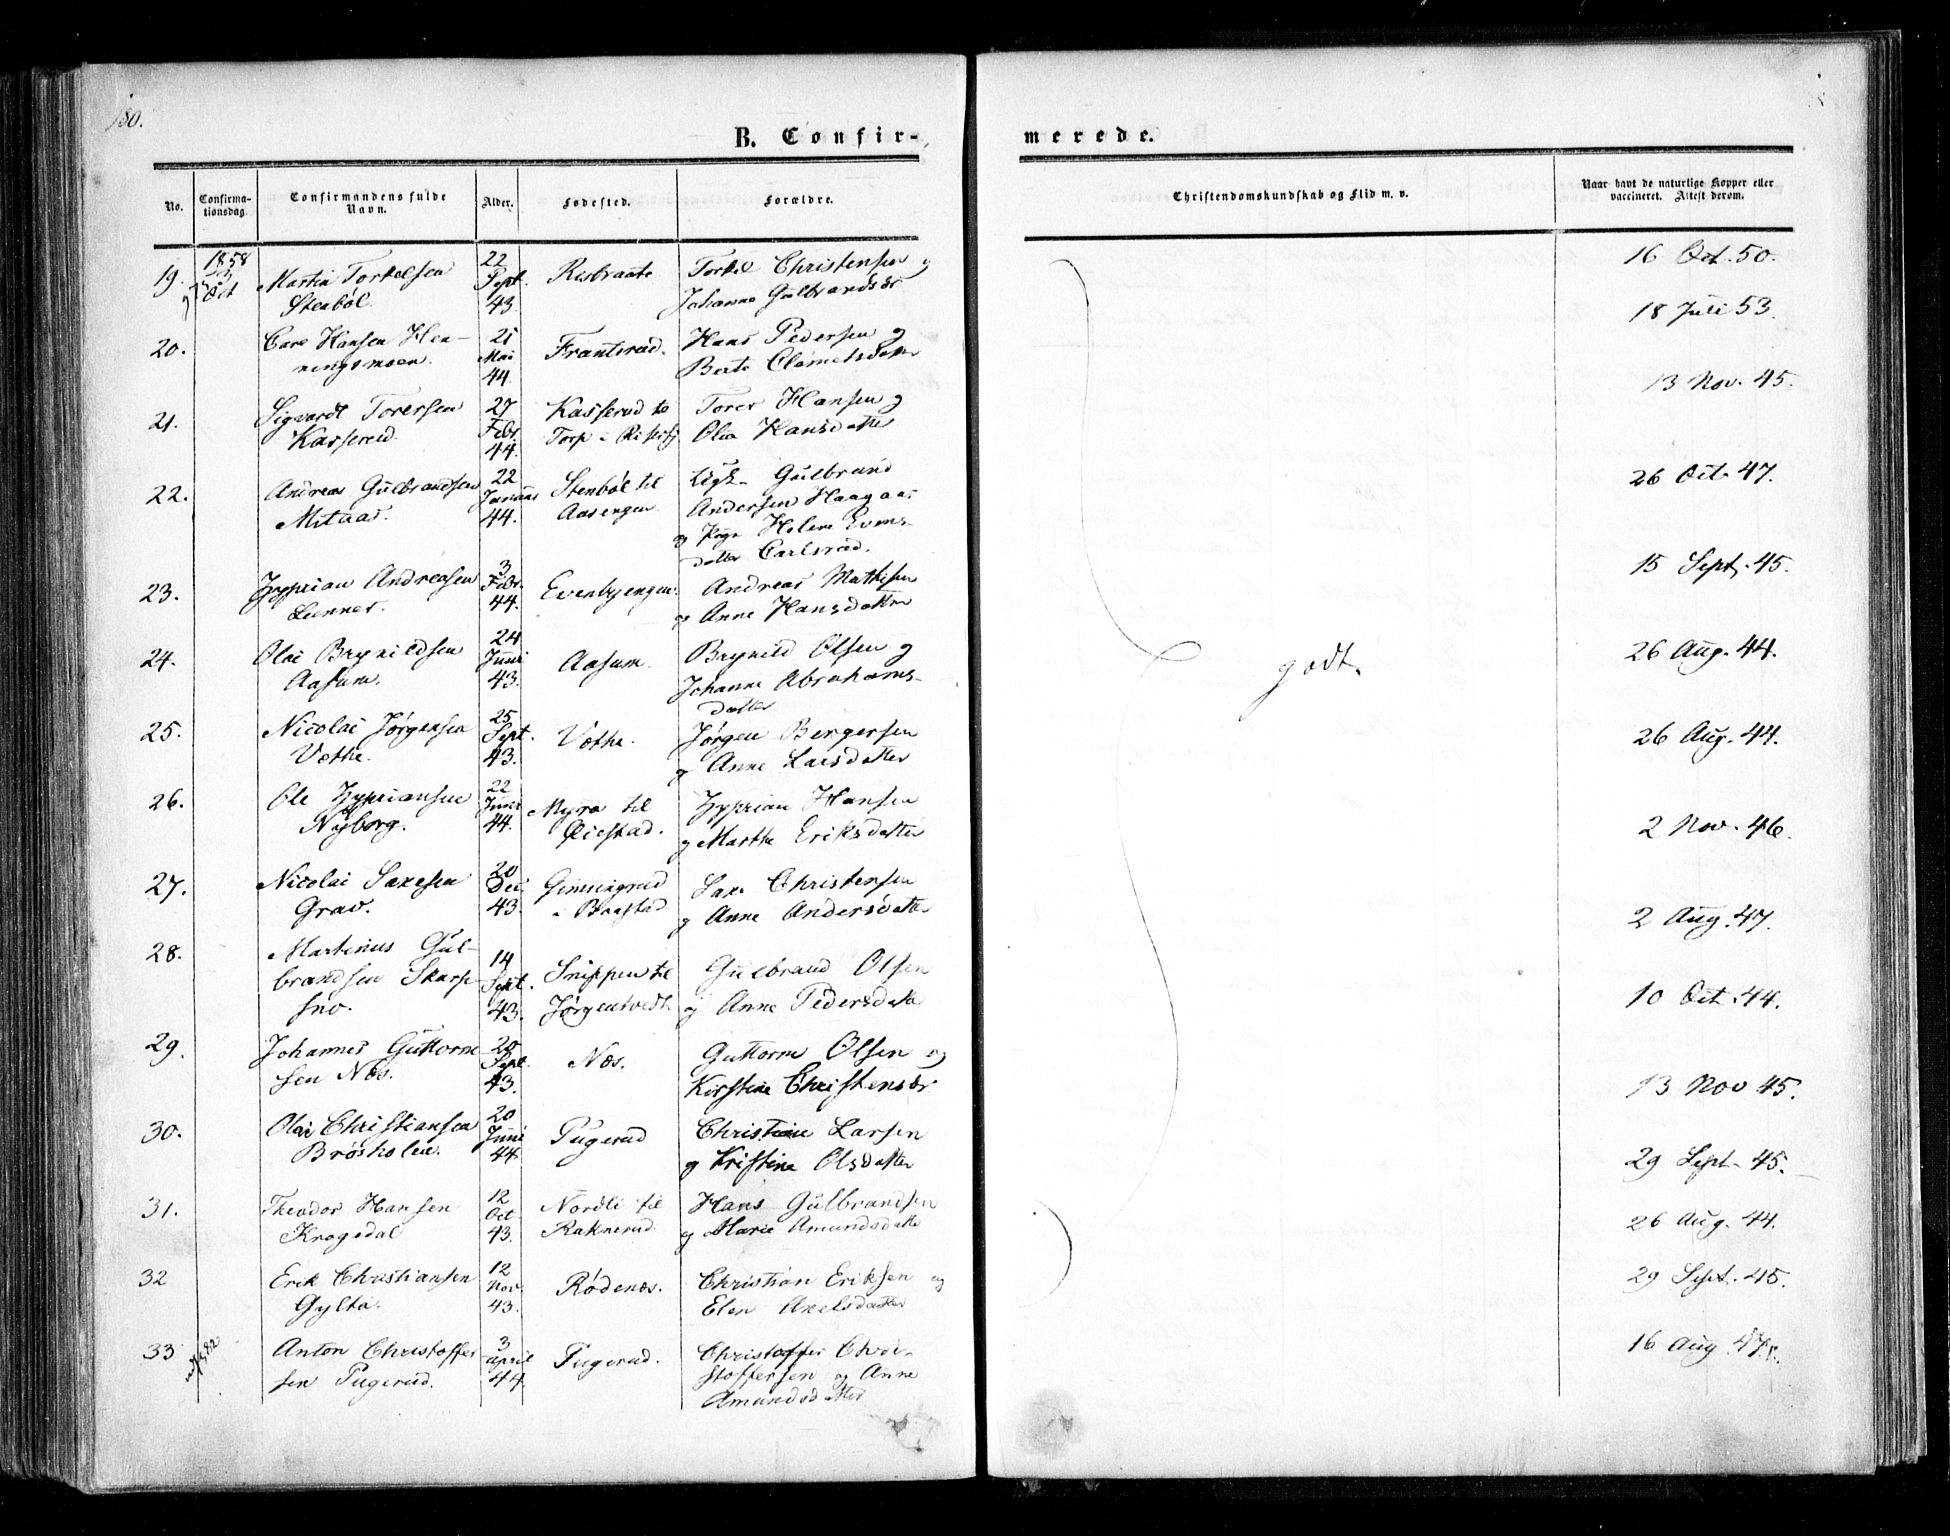 180.
B. Confir-
merede.
No.
Confirma-
tionsdag.
Confirmandens fulde
Navn.
Alder.
Fødested.
Forældre.
Christendomskundskab og Flid m. v.
Naar havt de naturlige Kopper eller
vaccineret. Attest derom.
19.
1858
3
Oct
Martin Torkelsen
Stenböl.
22
Sept.
43.
Risbraate
Torkel Christensen og
Johanne Gulbrandsdr
16 Oct. 50.
20.
Carl Hansen Hen-
ningsmoen.
21
Mai
44.
Frantsrud.
Hans Pedersen og
Berte Clemetsdatter
18 Juli 53.
21.
Sigvardt Torersen
Kasserud.
27
Febr.
44.
Kasserud til
Torp i
Torer Hansen og
Olia Hansdatter
13 Nov. 45.
22.
Andreas Gulbrandsen
Mitaas.
22
Januar
44.
Stenböl til
Aasengen.
Ugk. Gulbrand
Andersen Haagaas
og Pige Helene Evens-
datter Carlsrud.
26 Oct. 47.
23.
Zyprian Andreasen
Lunner.
3
Febr.
44.
Evenbyengen.
Andreas Mathisen
og Anne Hansdatter
15 Sept. 45.
24.
Olai Brynildsen
Aasum.
24
Juni
43.
Aasum.
Brynild Olsen og
Johanne Abrahams-
datter
godt.
26 Aug. 44.
25.
Nicolai Jørgensen
Vethe.
25
Sept.
43.
Vethe.
Jørgen Bergersen
og Anne Larsdatter
26 Aug. 44.
26.
Ole Zypriansen
Nyborg.
22
Juni
44.
Myra til
Øiestad.
Zyprian Hansen
og Marthe Eriksdatter
2 Nov. 46.
27.
Nicolai Saxesen
Grav.
20
Dec.
43.
Gimsingrud
i Braastad
Saxe Christensen
og Anne Andersdatter
2 Aug. 47.
28.
Martinus Gul-
brandsen Skarp-
sno.
14
Sept.
43.
Snippen til
Jørgentvedt.
Gulbrand Olsen
og Anne Pedersdatter
10 Oct. 44.
29.
Johannes Guttorm-
sen Næs.
20
Sept.
43.
Næs.
Guttorm Olsen og
Kirstine Christensdr
13 Nov 45.
30.
Olai Christiansen
Brøsholen.
20
Juni
44.
Pugerud
Christian Larsen
og Kristine Olsdatter
29 Sept. 45.
31.
Theodor Hansen
Krogedal
12
Oct.
43.
Nordli til
Raknerud.
Hans Gulbrandsen
og Marie Amundsdatter
26 Aug. 44.
32
Erik Christiansen
Gylta.
12
Nov.
43.
Rødenæs.
Christian Eriksen og
Elen Axelsdatter
29 Sept. 45.
33
Anton Christoffer-
sen Pugerud.
3
april
44.
Pugerud.
Christoffer Chri-
stoffersen og Anne
Amundsdatter
16 Aug. 47.